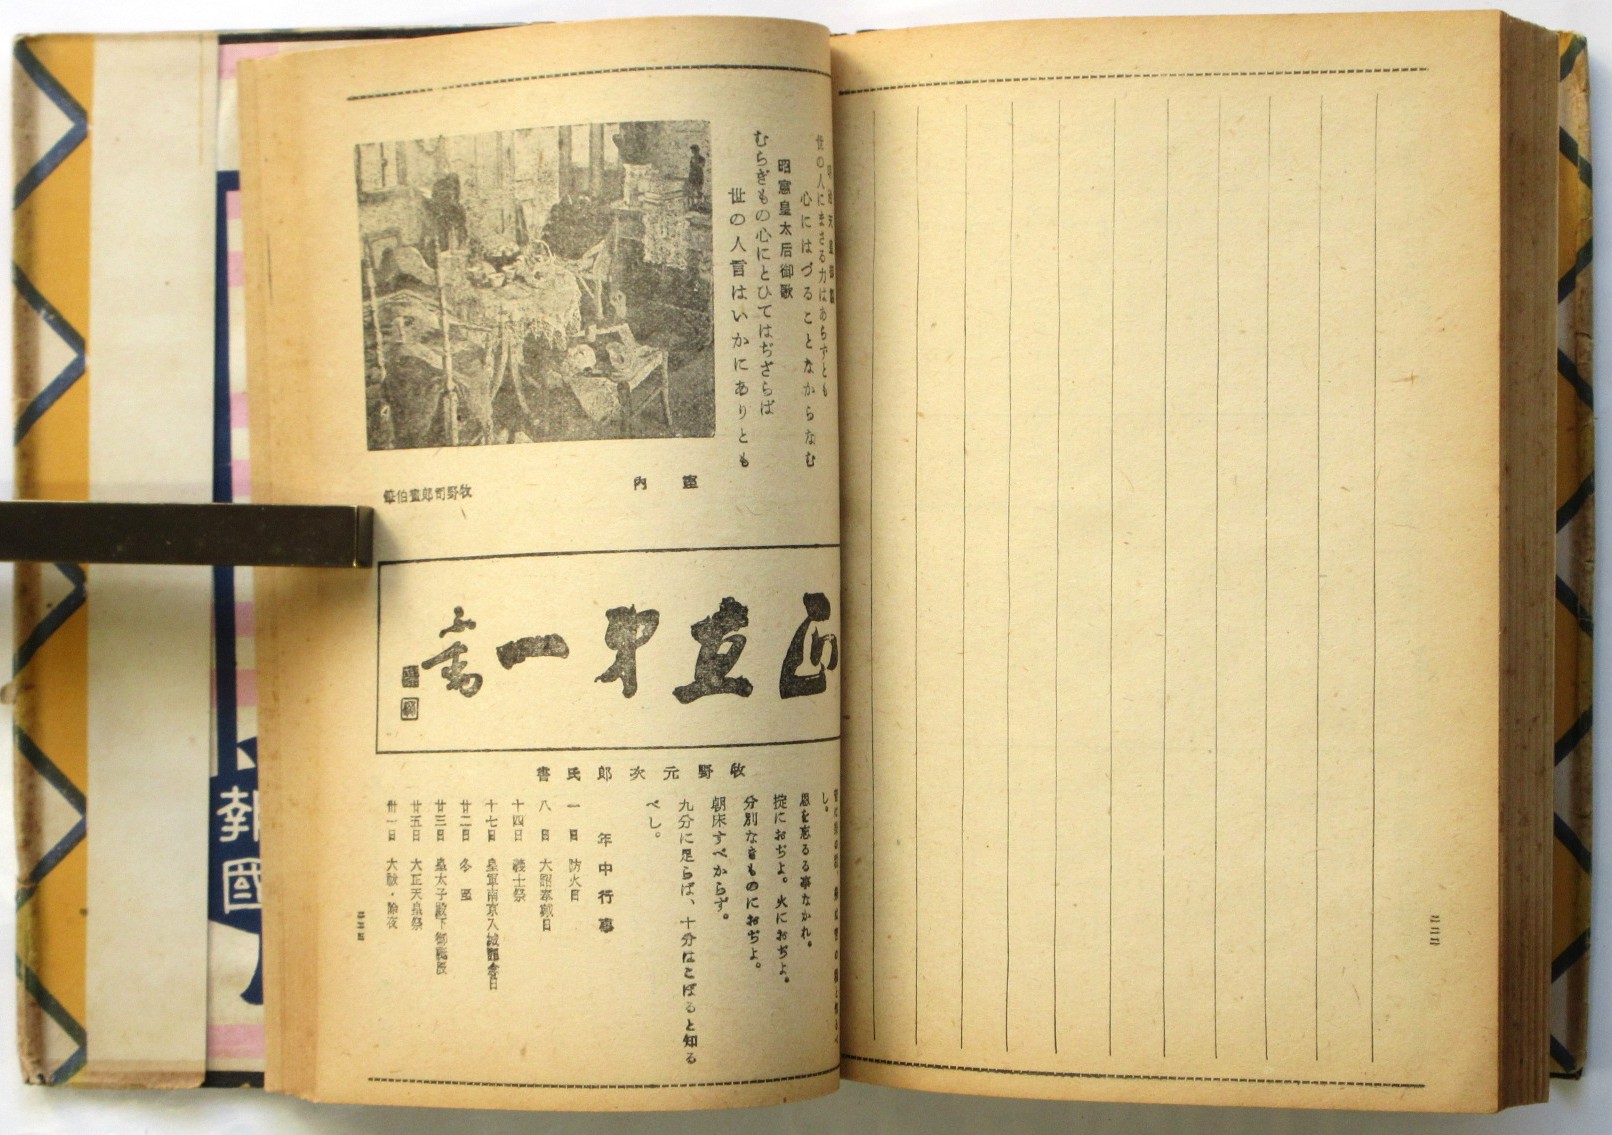 世の人にまさる力はあらずとも
心にはづることなからなむ
昭憲皇太后御歌
むらぎもの心にとひてはぢざらば
世の人言はいかにありとも
室内
牧野司郎畫伯筆
正直第一
牧野元次郎氏書
し。
恩を忘るる事なかれ。
掟におぢよ。火におぢよ。
分別なきものにおぢよ。
朝床すべからず。
九分に足らば、十分はこぼると知る
べし。
年中行事
一日 防火日
八日 大詔奉戴日
十四日 義士祭
十七日 皇軍南京入城記念日
廿二日 冬至
廿三日 皇太子殿下御誕辰
廿五日 大正天皇祭
卅一日 大祓・除夜
報國